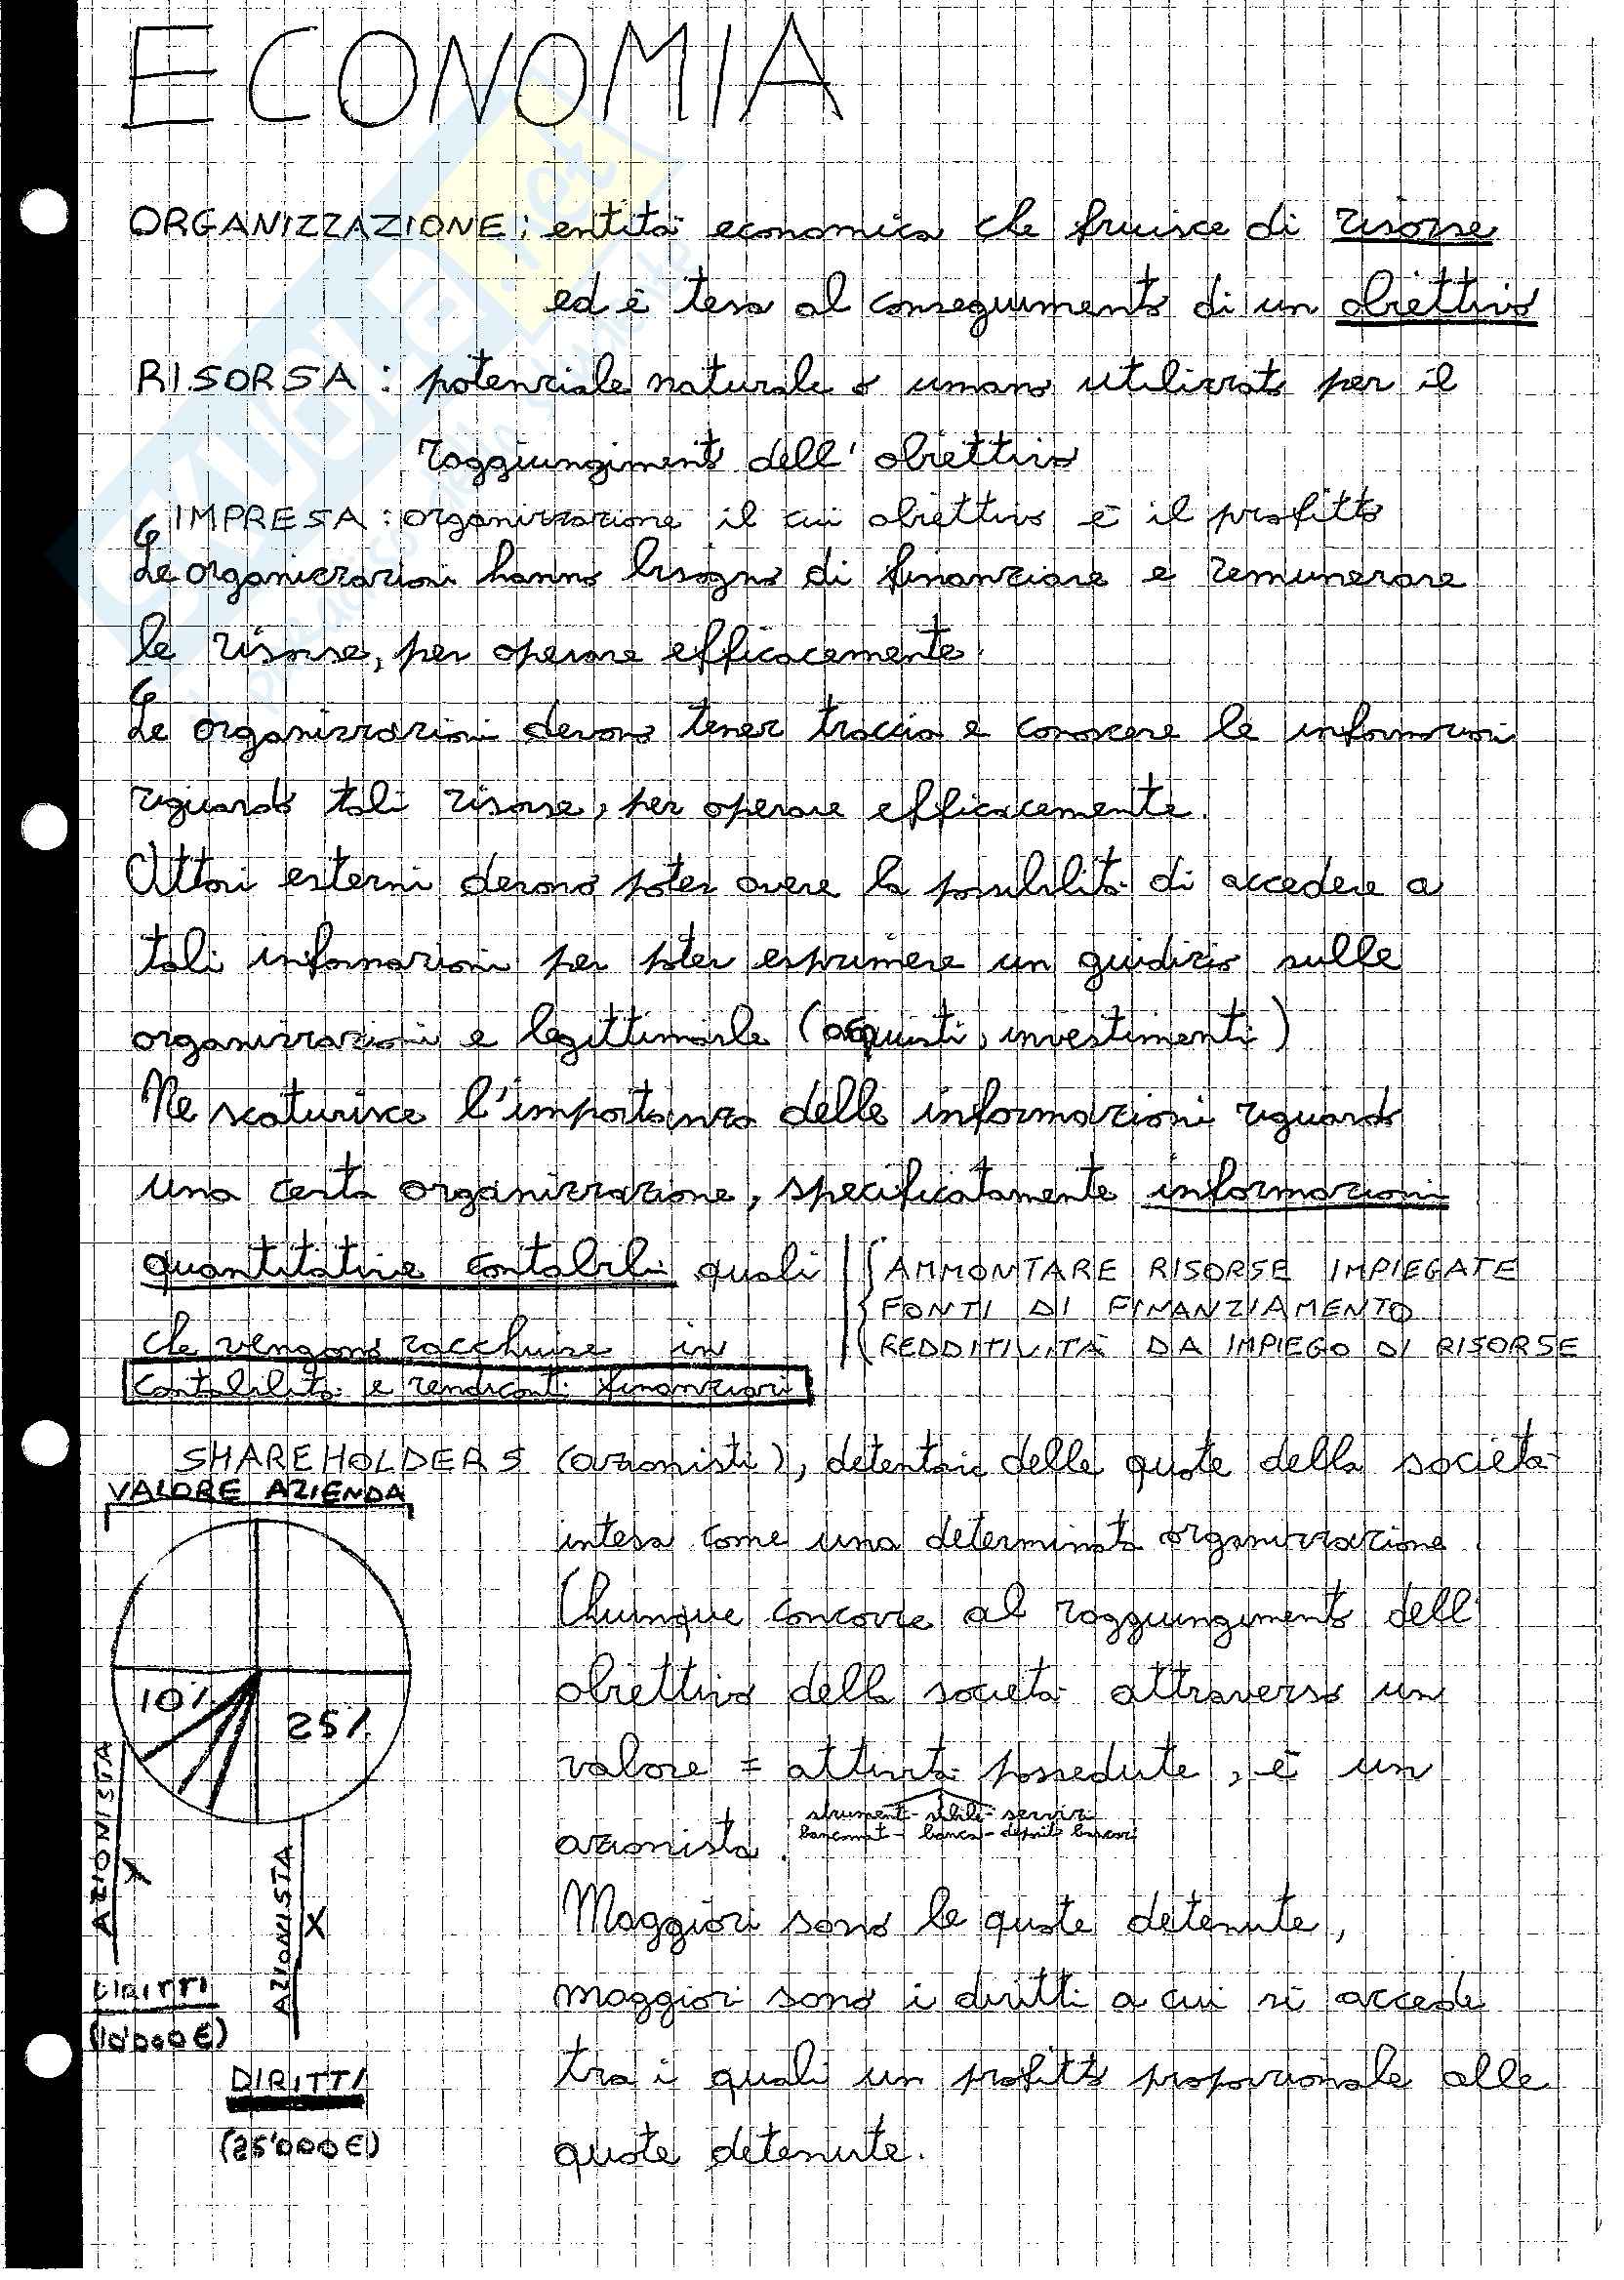 ECONOMIA
ORGANIZZAZIONE: entità economica che fruisce di risorse
ed è tesa al conseguimento di un obiettivo
RISORSA: potenziale naturale o umano utilizzato per il
raggiungimento dell'obiettivo
IMPRESA: organizzazione il cui obiettivo è il profitto
Le organizzazioni hanno bisogno di finanziare e remunerare
le risorse, per operare efficacemente.
Le organizzazioni devono tener traccia e conoscere le informazioni
riguardo tali risorse, per operare efficacemente.
Attori esterni devono poter avere la possibilità di accedere a
tali informazioni per poter esprimere un giudizio sulle
organizzazioni e legittimarle (acquisti, investimenti)
Ne scaturisce l'importanza delle informazioni riguardo
una certa organizzazione, specificatamente informazioni
quantitative contabili quali
AMMONTARE RISORSE IMPIEGATE
FONTI DI FINANZIAMENTO
REDDITIVITÀ DA IMPIEGO DI RISORSE
che vengono racchiuse in
contabilità e rendiconti finanziari
SHAREHOLDERS (azionisti), detentori delle quote della società
intesa come una determinata organizzazione
Chiunque concorre al raggiungimento dell'
obiettivo della società attraverso un
valore = attività possedute, è un
strumenti - stabili - servizi
bancomat - banca - depositi bancari
azionista.
Maggiori sono le quote detenute,
maggiori sono i diritti a cui si accede
tra i quali un profitto proporzionale alle
quote detenute.
VALORE AZIENDA
10%
25%
AZIONISTA
Y
AZIONISTA
X
DIRITTI
(10'000€)
DIRITTI
(25'000€)